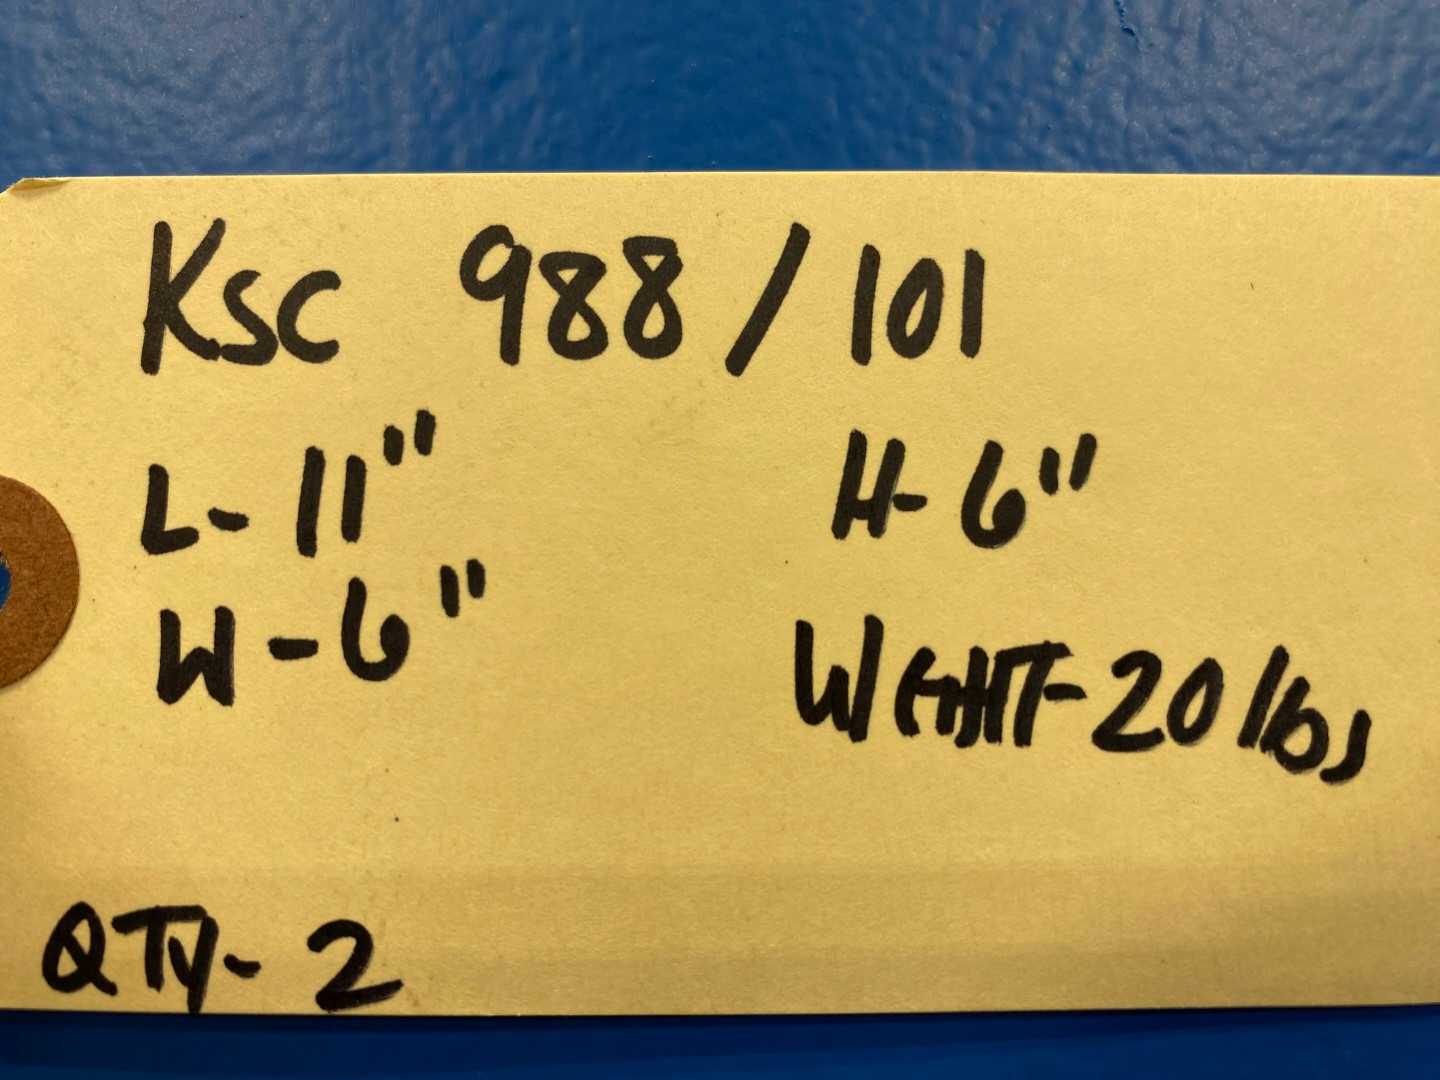 Ksc 988 / 101
L- 11" H- 6"
W - 6" WEGHT- 20 lbs
QTY- 2